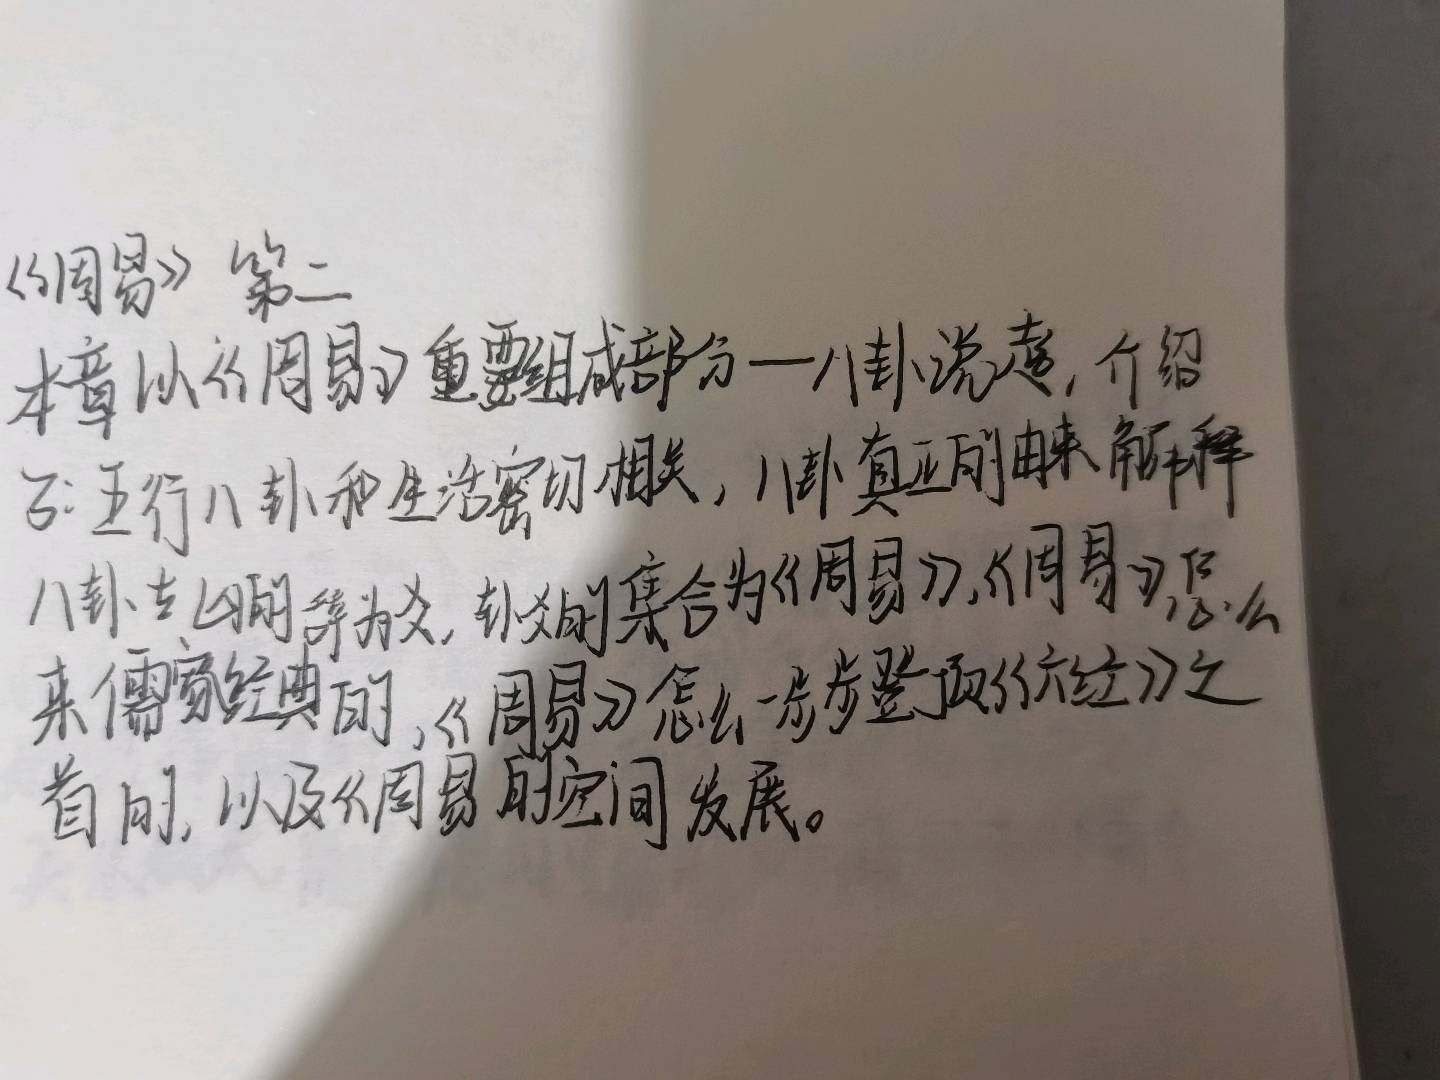 《周易》第二
本章以《周易》重要组成部分——八卦说起,介绍
了:五行八卦和生活密切相关,八卦真正的由来解释
八卦吉凶的辞为爻,卦爻的集合为《周易》,《周易》,怎么
来儒家经典的,《周易》怎么一步步登顶《六经》之
首的,以及《周易的空间发展。